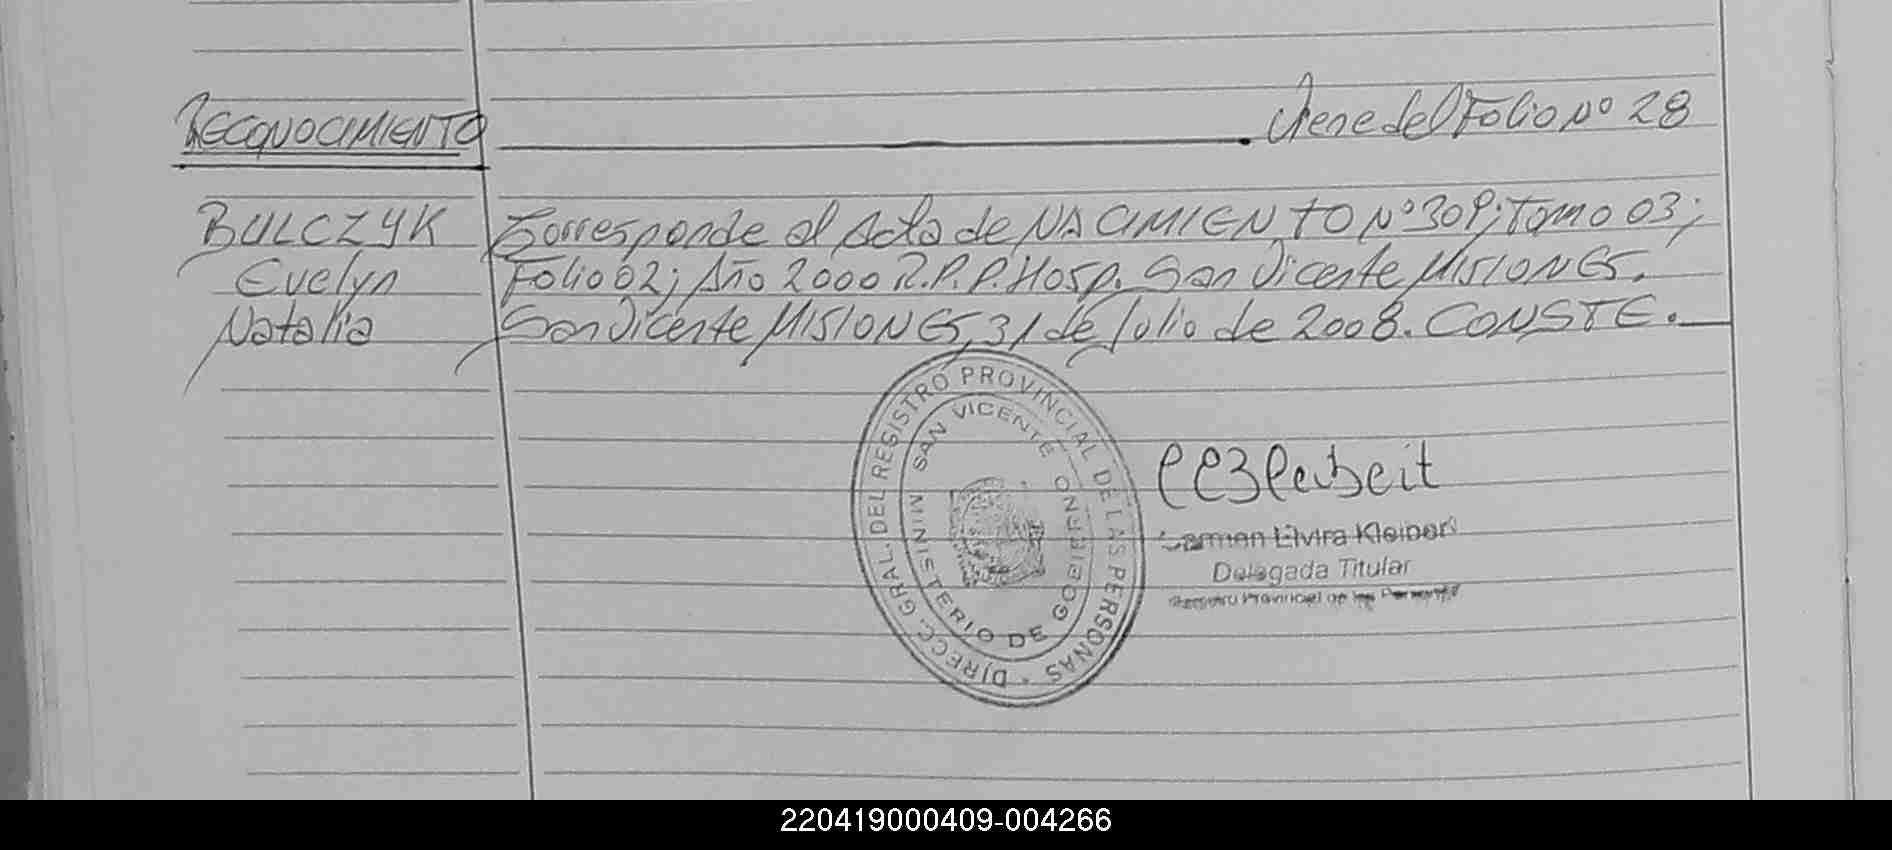 RECONOCIMIENTO . Viene del Folio Nº 28
BULCZYK Corresponde al Acta de NACIMIENTO Nº 309; Tomo 03;
Evelyn Folio 02; Año 2000 R.P.P. Hosp. San Vicente MISIONES.
Natalia San Vicente MISIONES, 31 de Julio de 2008. CONSTE.
DIRECC. GRAL. DEL REGISTRO PROVINCIAL DE LAS PERSONAS
SAN VICENTE
MINISTERIO DE GOBIERNO
Carmen Elvira Kleinert
Delegada Titular
Registro Provincial de las Personas
220419000409-004266